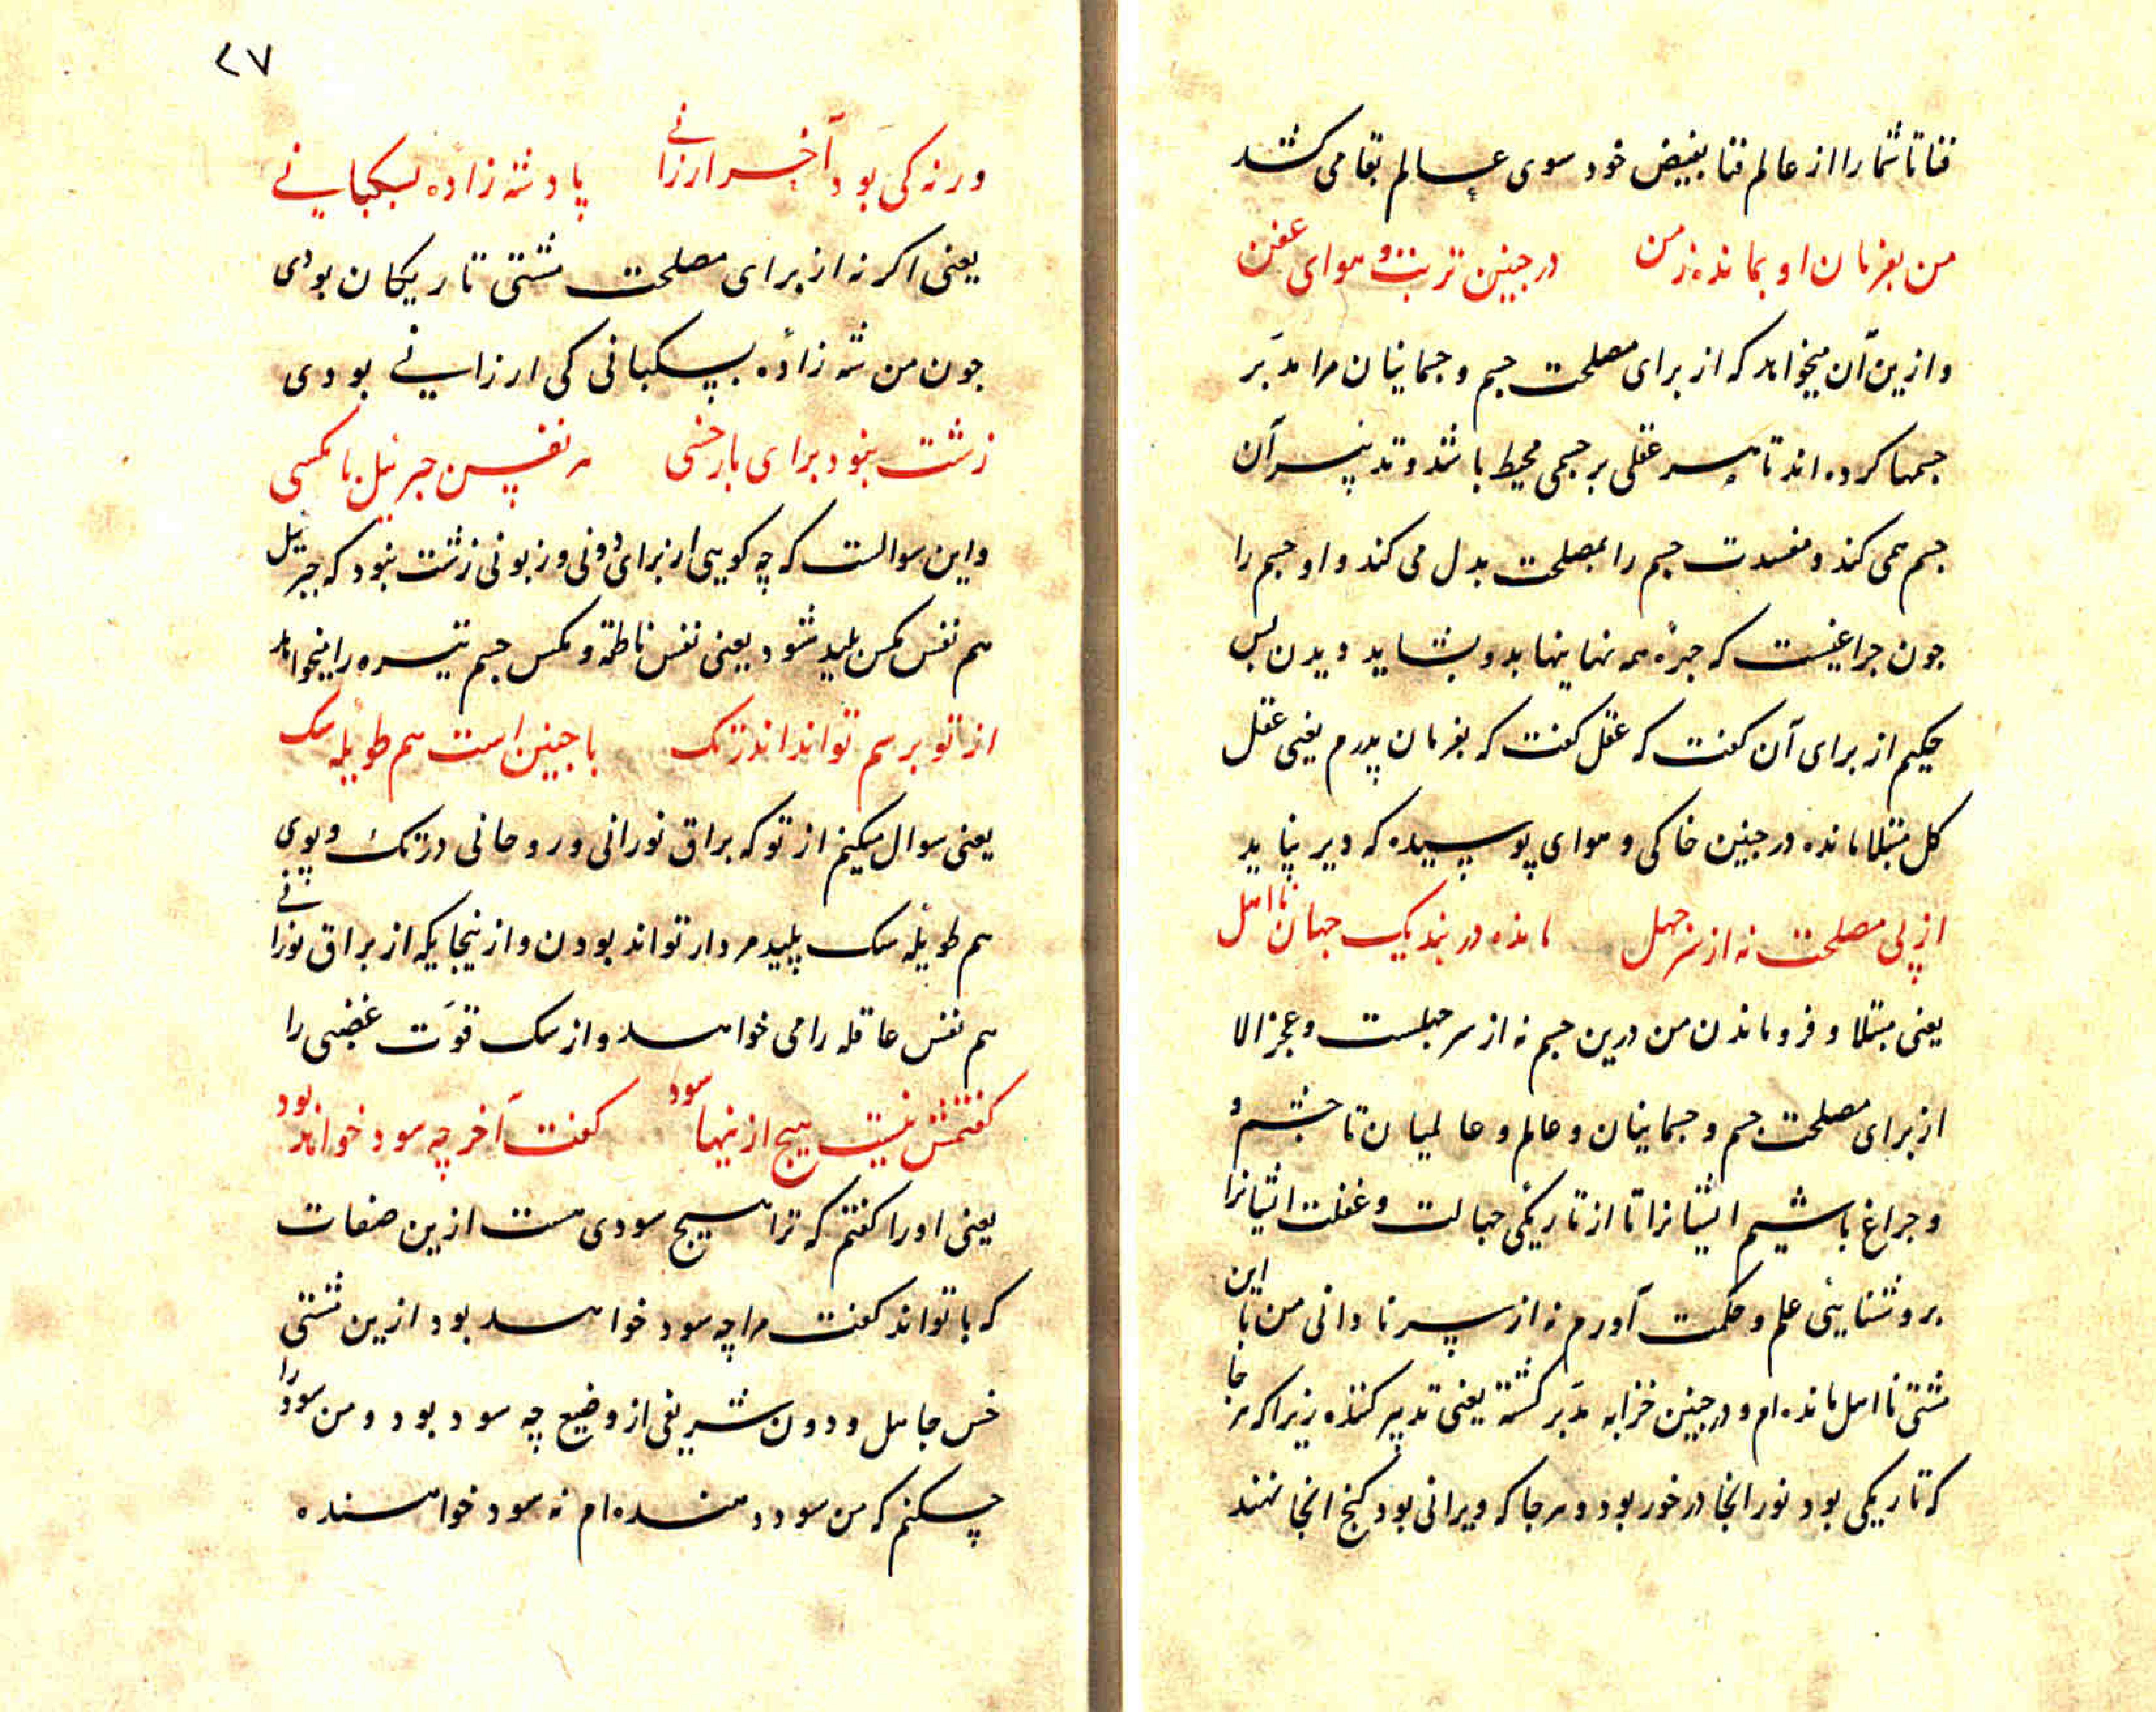 فنا تا شما را از عالم فنا بفیض خود سوی عالم بقا می کشد
من بفرمان او بمانده زمن در جنین تربت و هوای عفن
و ازین آن میخواهد که از برای مصلحت جسم و جسمانیان مرا مدبّر
جسمها کرده اند تا هر عقلی بر جسمی محیط باشد و تدبیر آن
جسم همی کند و مفسدت جسم را بمصلحت بدل می کند و او جسم را
جون جراغیست که جیزهٔ همه نهانیها بدو بشاید دیدن بس
حکیم از برای آن کفت که عقل کفت که بفرمان پدرم یعنی عقل
کل مبتلا مانده در جنین خاکی و هوای پوسیده که دیر نپاید
از پی مصلحت نه از سر جهل مانده در بند یک جهان نااهل
یعنی مبتلا و فرو ماندن من درین جسم نه از سر جهلست و عجز الا
از برای مصلحت جسم و جسمانیان و عالم و عالمیان تا جشم و
و جراغ باشیم ایشانرا تا از تاریکی جهالت و غفلت ایشانرا
بروشنایی علم و حکمت آورم نه از سر نادانی من با این
مشتی نااهل مانده ام و در جنین خرابه مدبّر کشته یعنی تدبیر کننده زیرا که هر جا
که تاریکی بود نور انجا در خور بود و هر جا که ویرانی بود کنج انجا نهند
٢٧
ورنه کی بود آخر ارزانی پادشه زاده بسکبانی
یعنی اکر نه از برای مصلحت مشتی تاریکان بودی
جون من شه زاده بسکبانی کی ارزانی بودی
زشت نبود برای بار خسی هم نفس جبرئیل با مکسی
و این سوالست که چه کویی از برای دونی و زبونی زشت نبود که جبرئیل
هم نفس مکس پلید شود یعنی نفس ناطقه و مکس جسم تیره را میخواهد
از تو برسم تواند اندر تک با جنین است هم طویله سک
یعنی سوال میکنم از تو که براق نورانی و روحانی در تک و پوی
هم طویله سک پلید مردار تواند بودن و از ینجا یکه از براق نورانی
هم نفس عاقله را می خواهد و از سک قوّت غضبی را
کفتمش نیست هیج ازینها سود کفت آخر چه سود خواهد بود
یعنی او را کفتم که ترا هیج سودی هست ازین صفات
که با تواند کفت مرا چه سود خواهد بود ازین مشتی
خس جاهل و دون شریفی از وضیع چه سود بود و من سود را
چکنم که من سود دهنده ام نه سود خواهنده